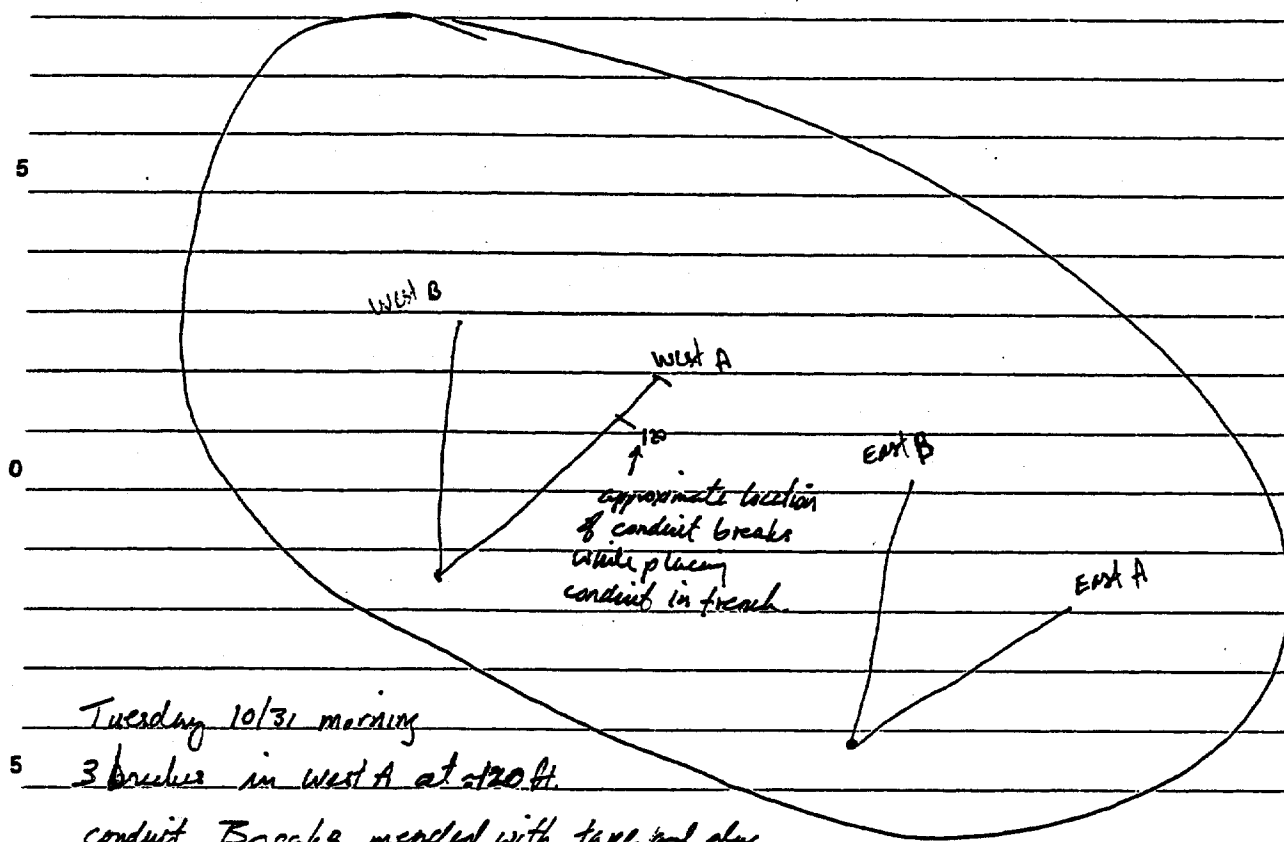 5
West B
West A
120
0
East B
approximate location
of conduit breaks
while placing
conduit in trench.
East A
Tuesday 10/31 morning
5
3 breaks in West A at ≈120 ft.
conduit Breaks mended with tape and